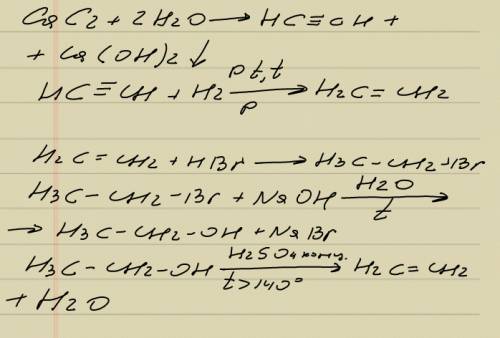 CaC2 + 2H2O → HC≡CH +
+ Ca(OH)2↓
HC≡CH + H2 Pt, t → P H2C=CH2
H2C=CH2 + HBr → H3C-CH2-Br
H3C-CH2-Br + NaOH H2O → t
→ H3C-CH2-OH + NaBr
H3C-CH2-OH H2SO4 конц. → t>140° H2C=CH2
+ H2O